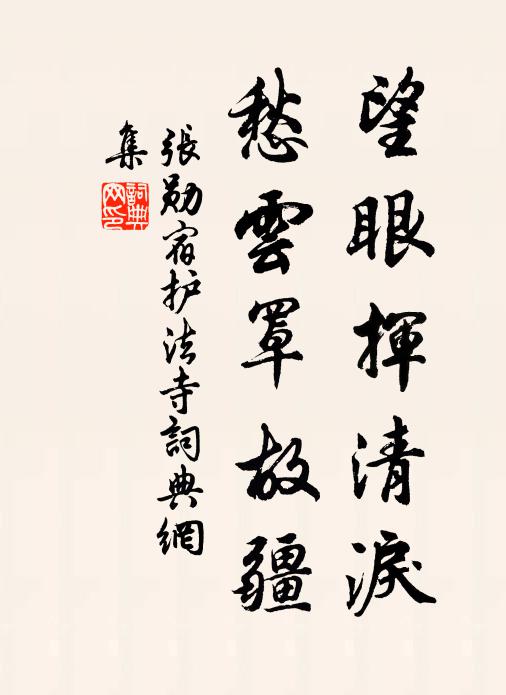 望眼揮清淚
愁雲罩故疆
張勛宿护法寺詞典網
集
詞典
网印